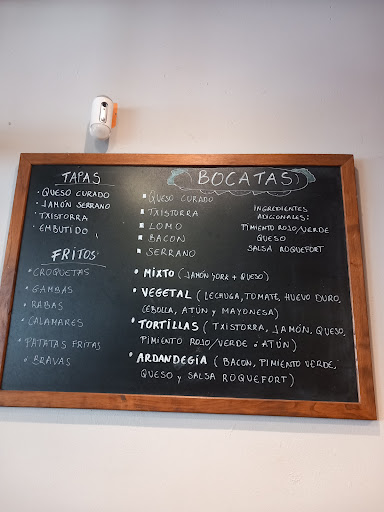 TAPAS
· QUESO CURADO
· JAMÓN SERRANO
· TXISTORRA
· EMBUTIDO
FRITOS
· CROQUETAS
· GAMBAS
· RABAS
· CALAMARES
· PATATAS FRITAS
· BRAVAS
BOCATAS
QUESO CURADO
TXISTORRA
LOMO
BACON
SERRANO
INGREDIENTES
ADICIONALES:
PIMIENTO ROJO/VERDE
QUESO
SALSA ROQUEFORT
· MIXTO (JAMÓN YORK + QUESO)
· VEGETAL (LECHUGA, TOMATE, HUEVO DURO,
CEBOLLA, ATÚN Y MAYONESA)
· TORTILLAS (TXISTORRA, JAMÓN, QUESO,
PIMIENTO ROJO/VERDE ó ATÚN)
· ARDANDEGIA (BACON, PIMIENTO VERDE,
QUESO y SALSA ROQUEFORT)